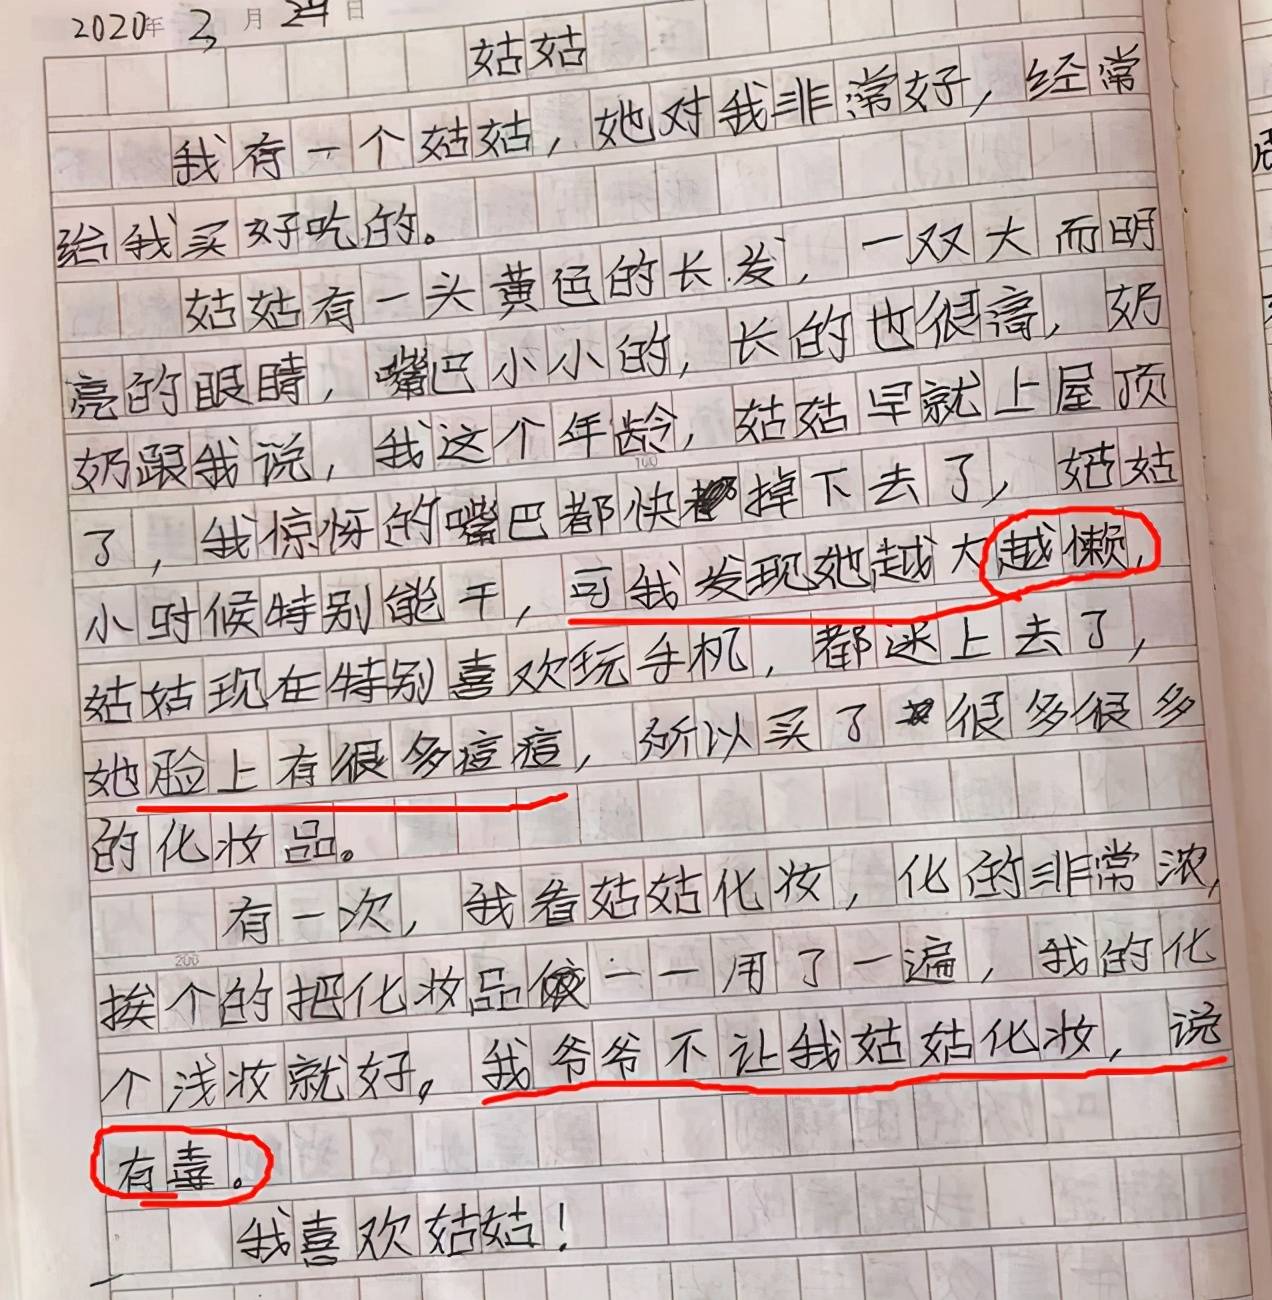 2020年 2月 24日
姑姑
我有一个姑姑，她对我非常好，经常
给我买好吃的。
姑姑有一头黄色的长发，一双大而明
亮的眼睛，嘴巴小小的，长的也很高，奶
奶跟我说，我这个年龄，姑姑早就上屋顶
100
了，我惊讶的嘴巴都快掉下去了，姑姑
小时候特别能干，可我发现她越大越懒，
姑姑现在特别喜欢玩手机，都迷上去了，
她脸上有很多痘痘，所以买了很多很多
的化妆品。
有一次，我看姑姑化妆，化的非常浓，
200
挨个的把化妆品一一用了一遍，我的化
个浅妆就好。我爷爷不让我姑姑化妆，说
有毒。
我喜欢姑姑！